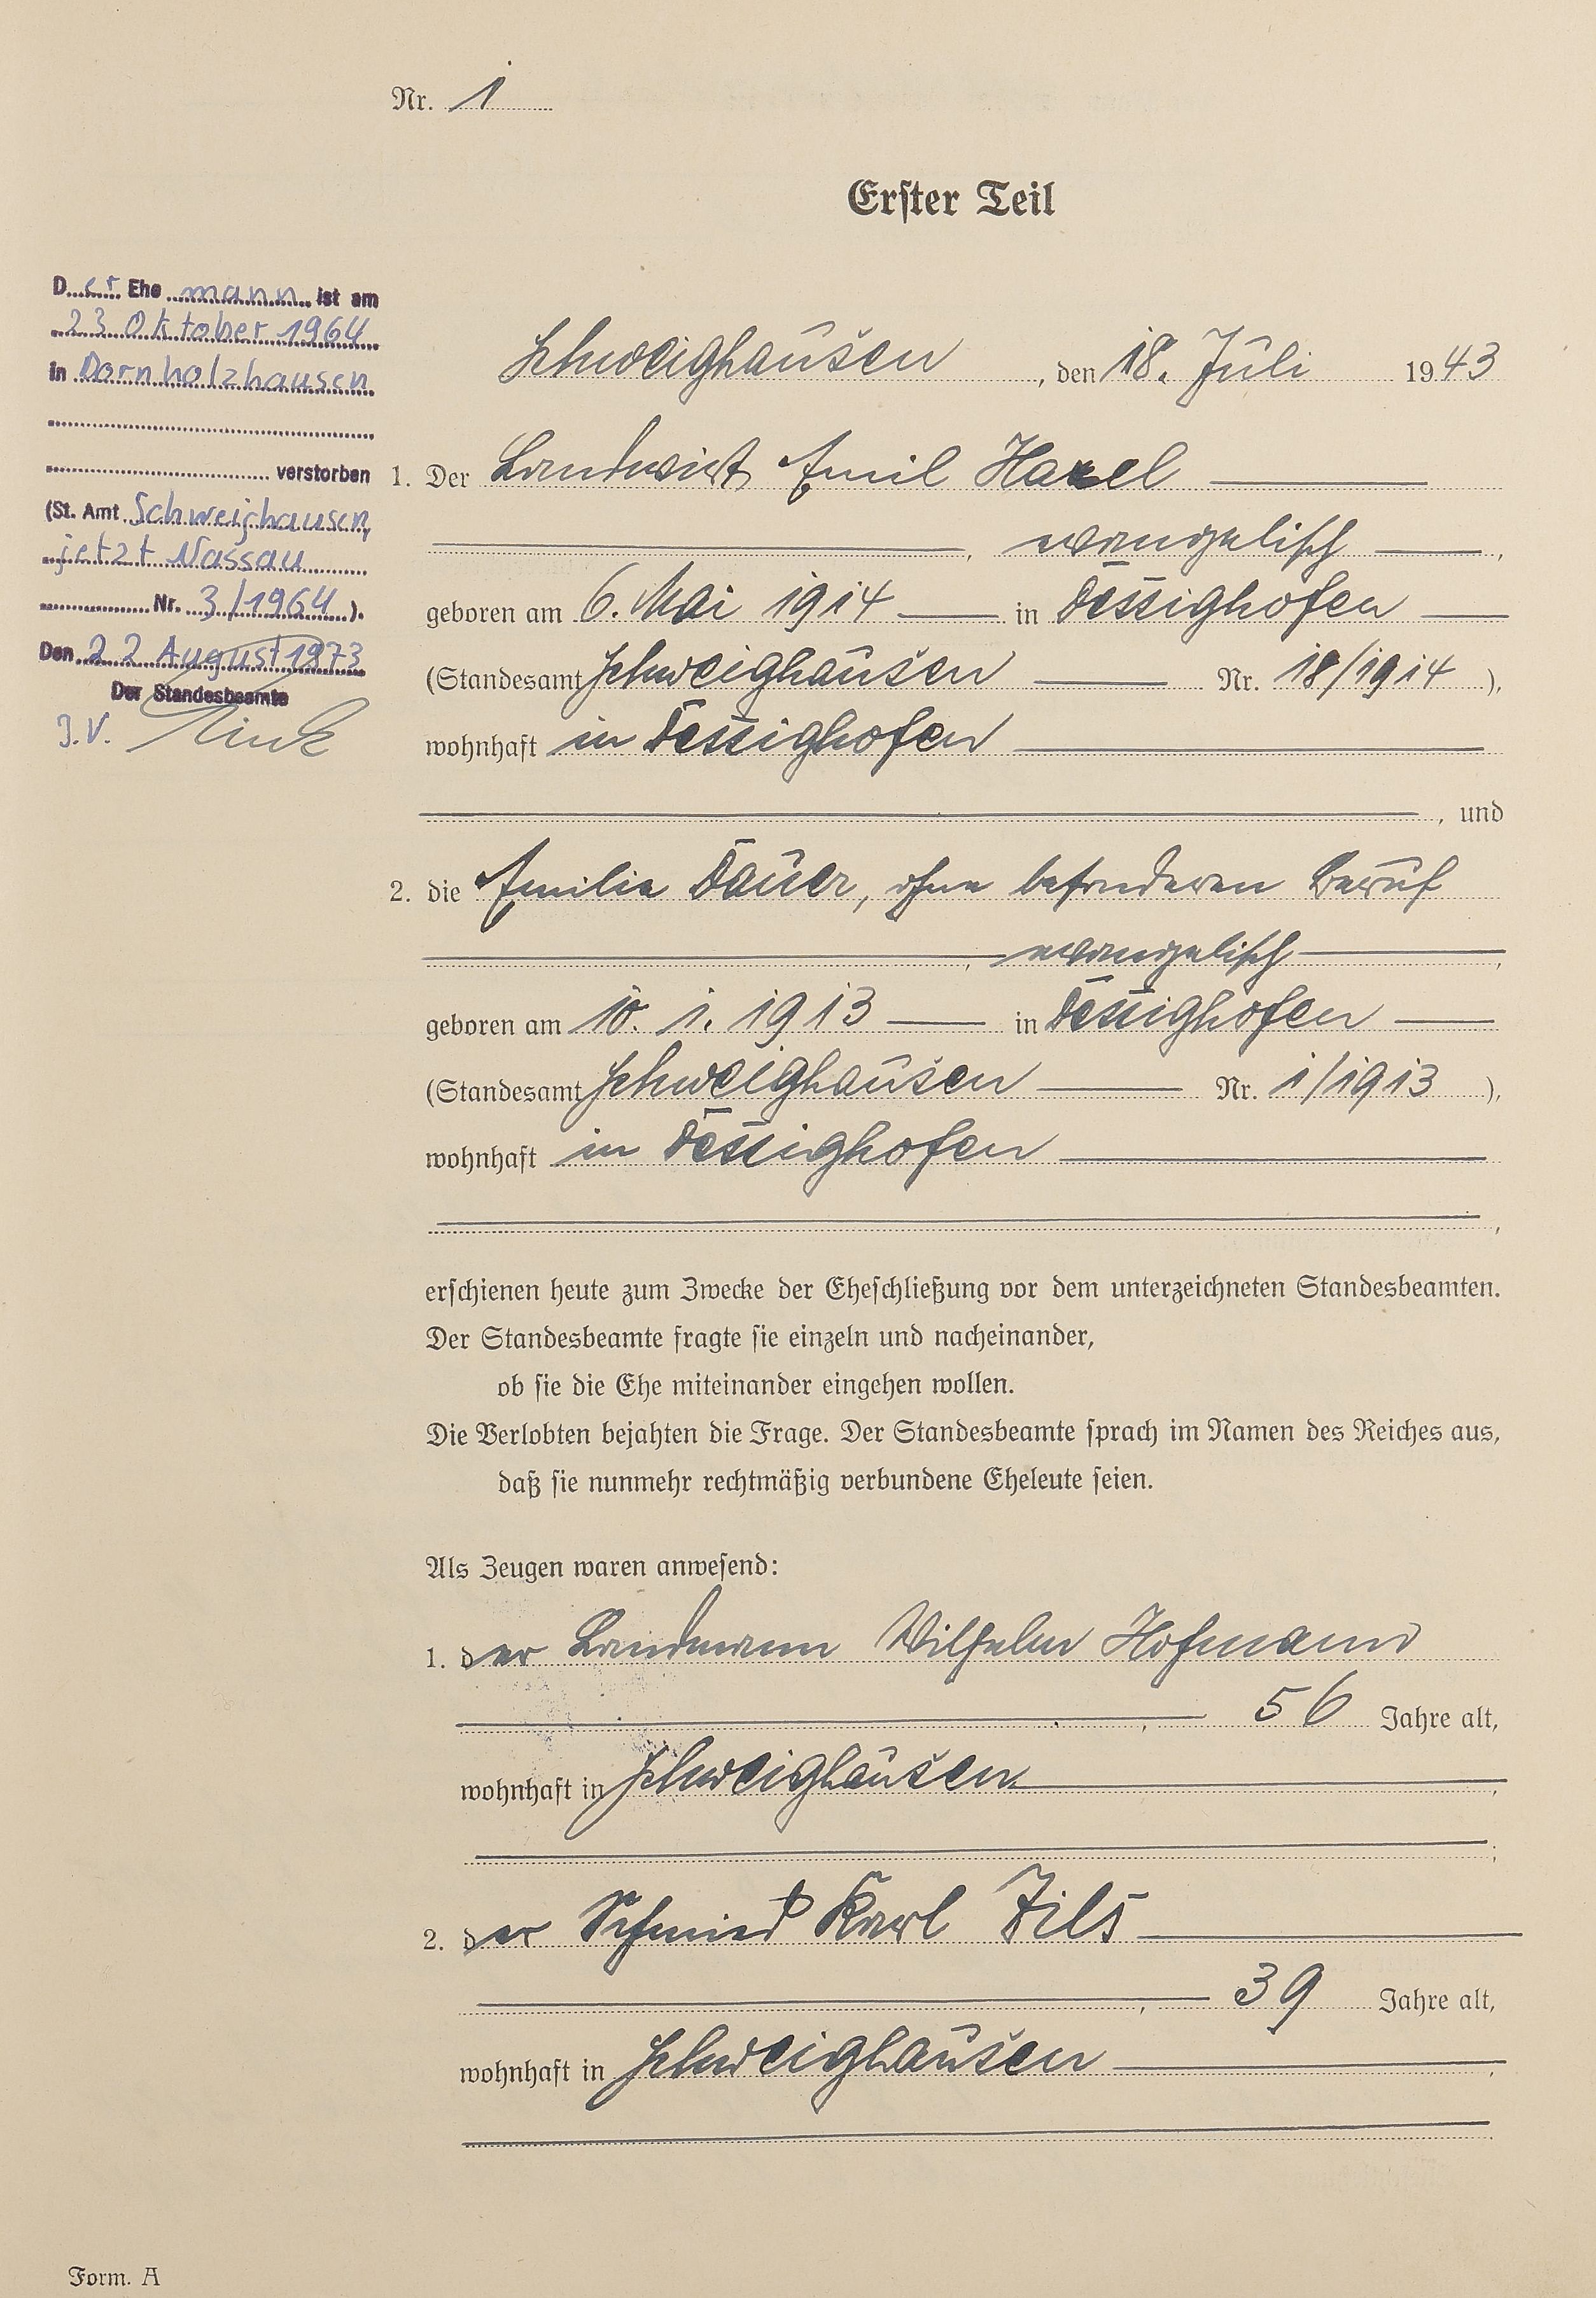 Nr. 1
Erster Teil
Der Ehemann ist am
23 Oktober 1964
in Dornholzhausen
verstorben
(St. Amt Schweighausen,
jetzt Nassau
Nr. 3/1964).
Den 22 August 1973
Der Standesbeamte
J.V.
Schweighausen, den 18. Juli 1943
1. Der Landwirt Emil Hazel
, evangelisch,
geboren am 6. Mai 1914 in Dessighofen
(Standesamt Schweighausen Nr. 18/1914),
wohnhaft in Dessighofen
, und
2. die Emilie Bauer, ohne besonderen Beruf
, evangelisch,
geboren am 10. 1. 1913 in Dessighofen
(Standesamt Schweighausen Nr. 1/1913),
wohnhaft in Dessighofen
,
erschienen heute zum Zwecke der Eheschließung vor dem unterzeichneten Standesbeamten.
Der Standesbeamte fragte sie einzeln und nacheinander,
ob sie die Ehe miteinander eingehen wollen.
Die Verlobten bejahten die Frage. Der Standesbeamte sprach im Namen des Reiches aus,
daß sie nunmehr rechtmäßig verbundene Eheleute seien.
Als Zeugen waren anwesend:
1. der Landmann Wilhelm Hofmann
, 56 Jahre alt,
wohnhaft in Schweighausen,
;
2. der Schmied Karl Zils
, 39 Jahre alt,
wohnhaft in Schweighausen,
.
Form. A